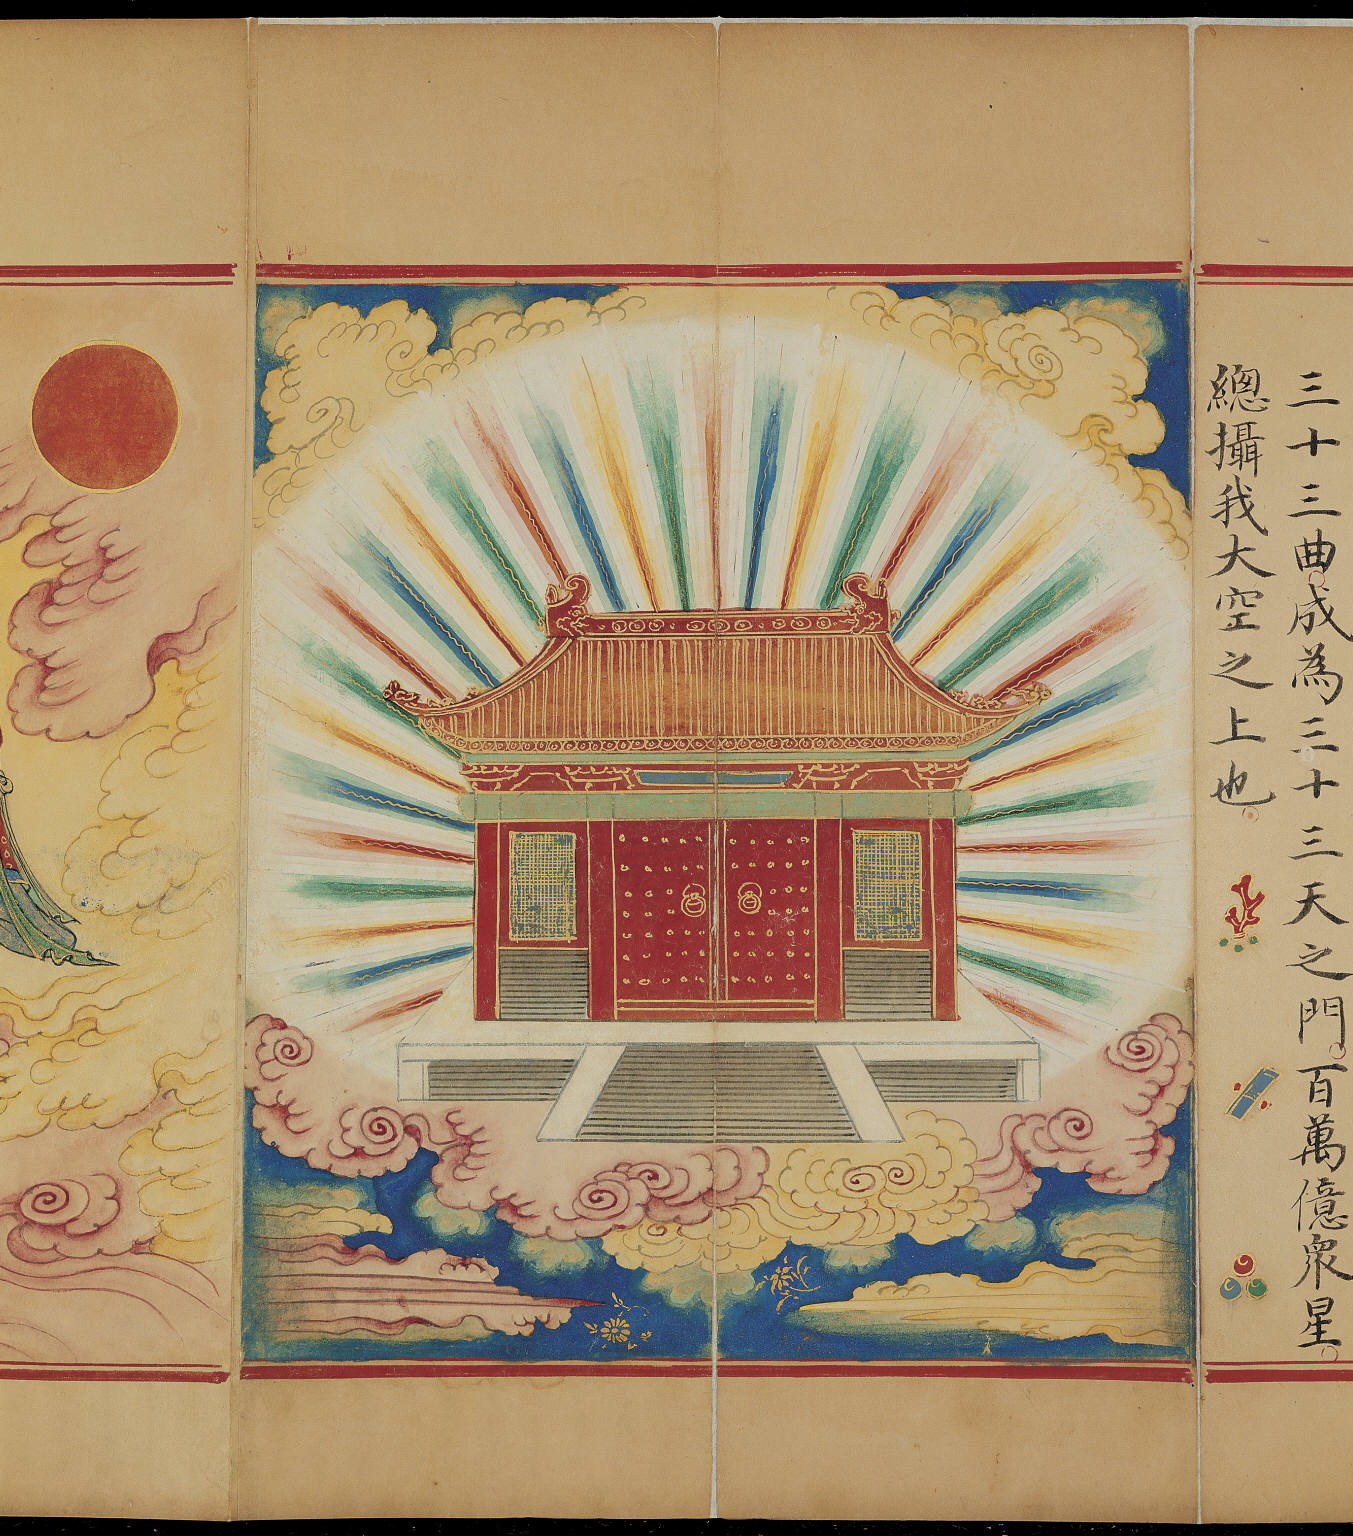 三十三曲成為三十三天之門百萬億衆星
總攝我大空之上也